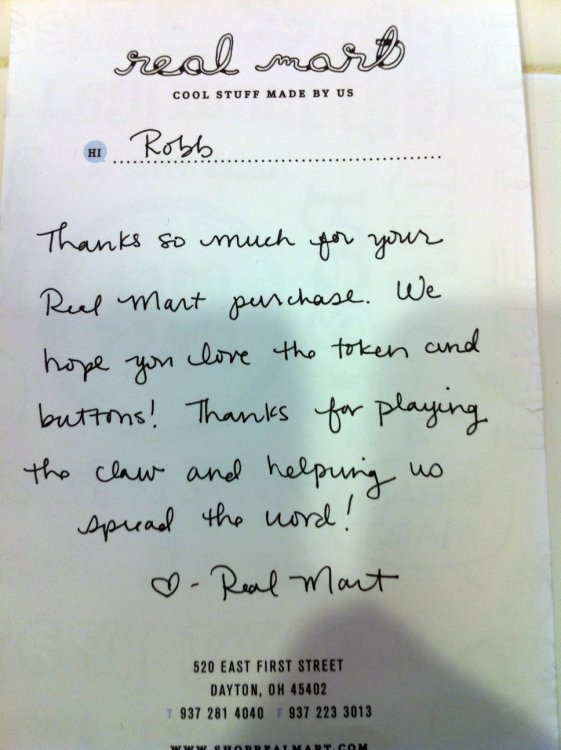 real mart
COOL STUFF MADE BY US
HI Robb
Thanks so much for your
Real Mart purchase. We
hope you love the token and
buttons! Thanks for playing
the claw and helping us
spread the word!
♡ - Real Mart
520 EAST FIRST STREET
DAYTON, OH 45402
T 937 281 4040 F 937 223 3013
WWW.SHOPREALMART.COM